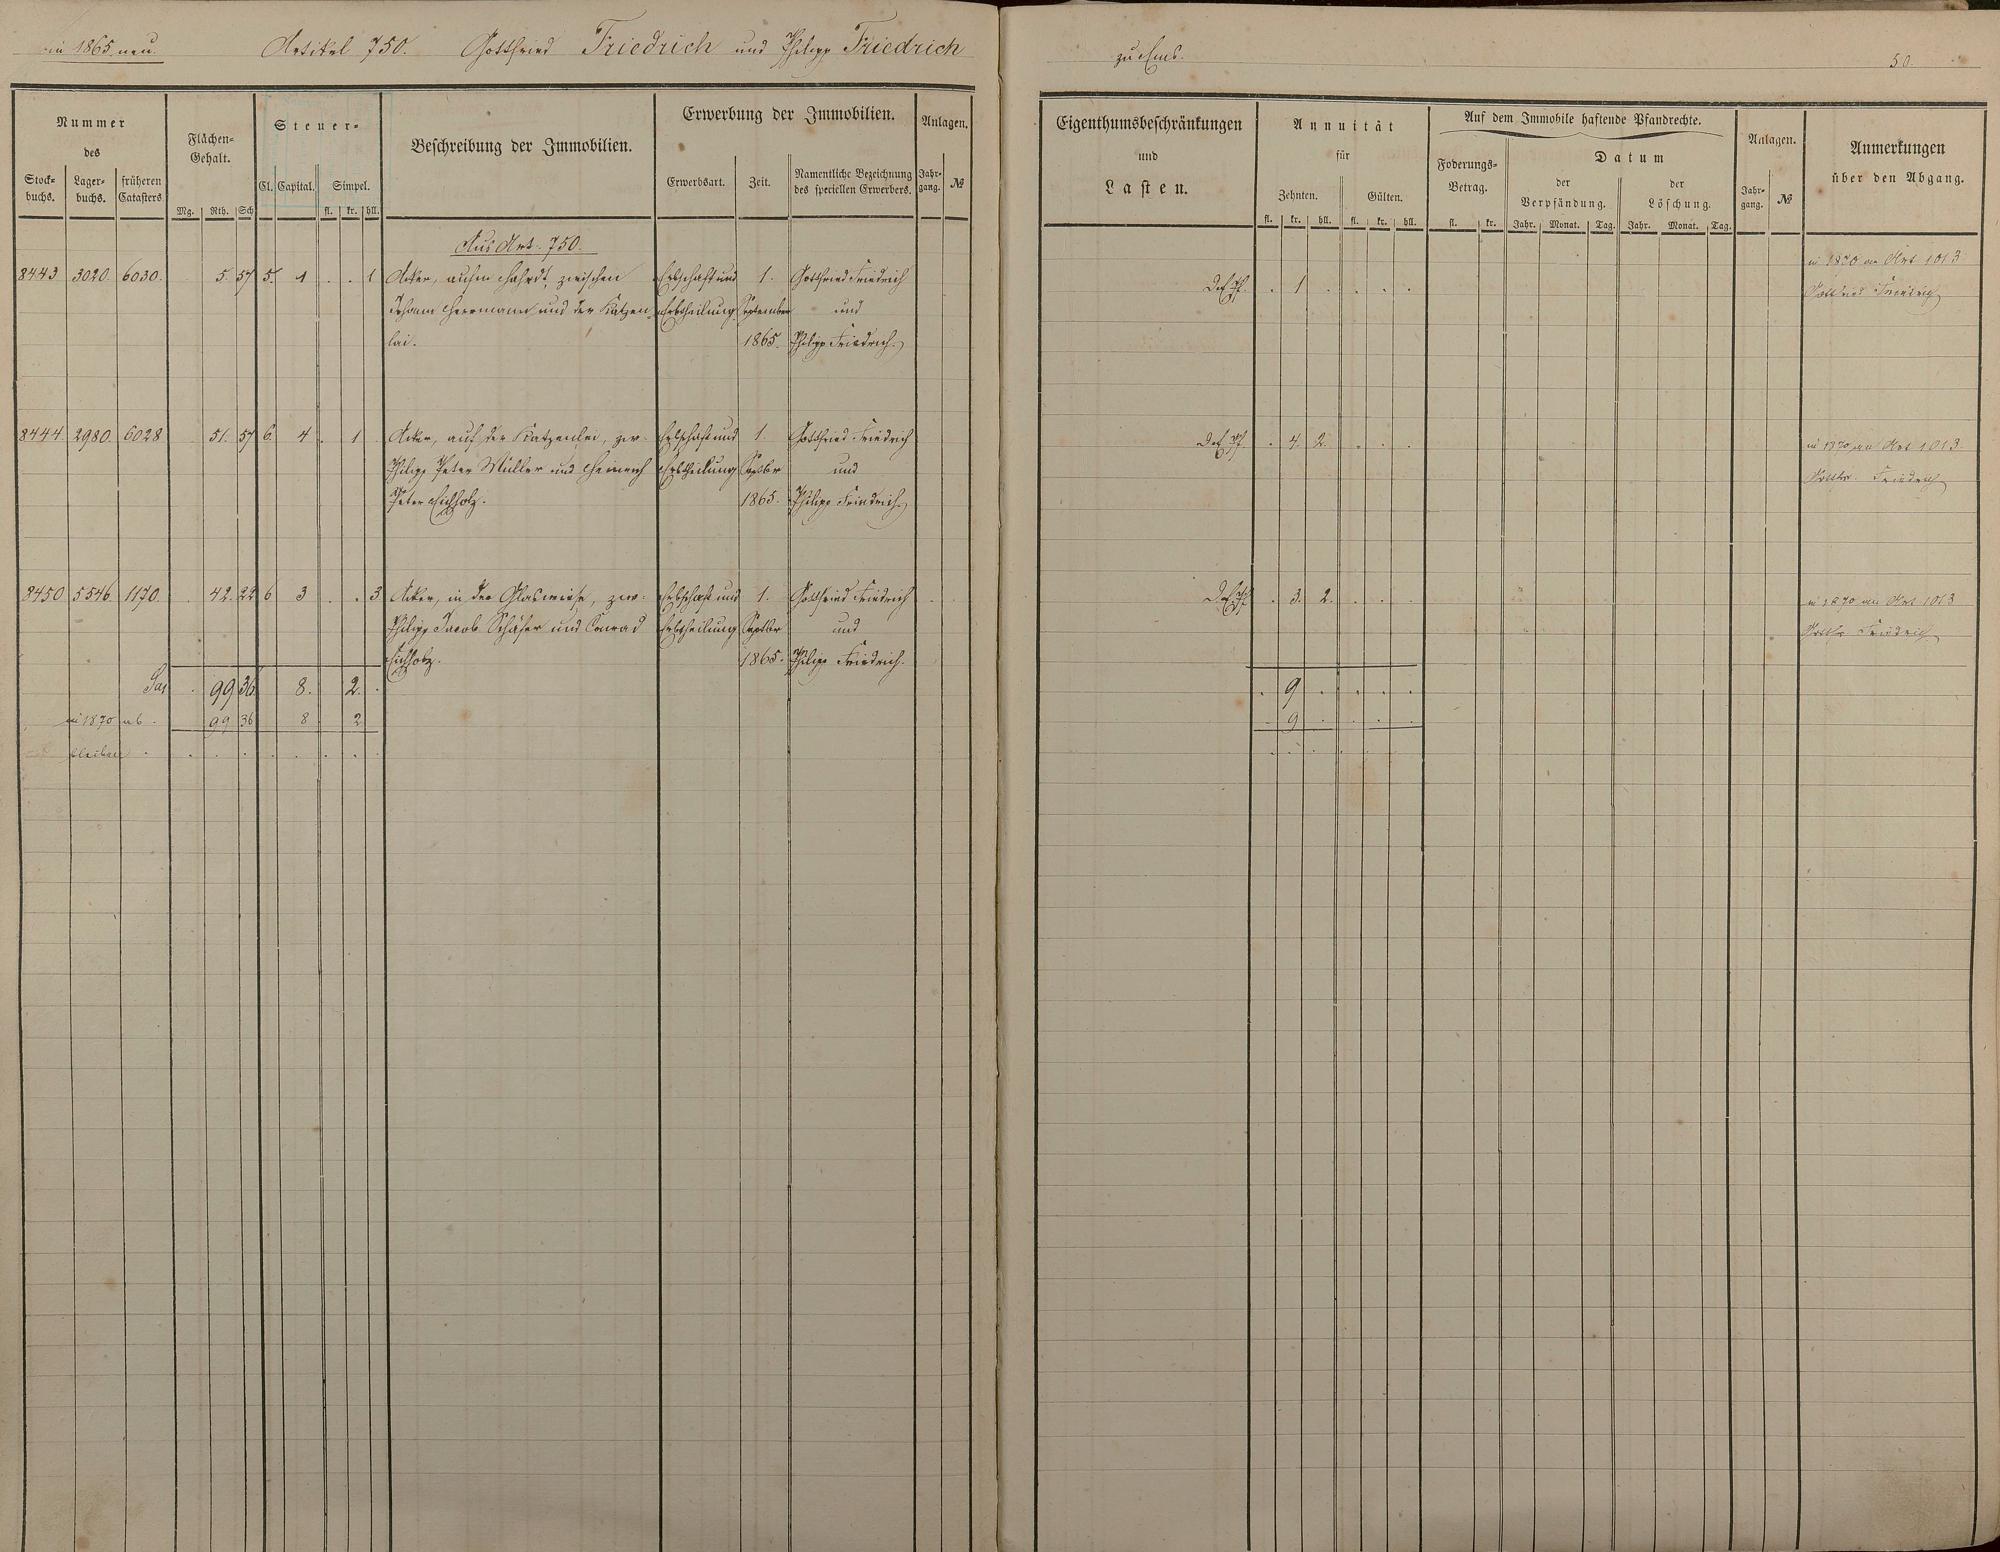 in 1865 neu. Artikel 750. Gottfried Friedrich und Philipp Friedrich
zu Ems. 50.
Nummer
des
Stock-
buchs. Lager-
buchs. früheren
Catasters.
Flächen-
Gehalt.
Mg. Rth. Sch
Steuer-
Cl. Capital. Simpel.
fl. kr. hll.
Beschreibung der Immobilien.
Erwerbung der Immobilien.
Erwerbsart. Zeit. Namentliche Bezeichnung
des speciellen Erwerbers.
Anlagen.
Jahr-
gang. №
Eigenthumsbeschränkungen
und
Lasten.
Annuität
für
Zehnten. Gülten.
fl. kr. hll. fl. kr. hll.
Auf dem Immobile haftende Pfandrechte.
Foderungs-
Betrag.
fl. kr.
Datum
der
Verpfändung.
Jahr. Monat. Tag.
der
Löschung.
Jahr. Monat. Tag.
Anlagen.
Jahr-
gang. №
Anmerkungen
über den Abgang.
Aus Art. 750.
8443 3020. 6030. 5. 57 5. 1 . . 1 Acker, zwischen Erbschaft und 1. Gottfried Friedrich
Johann Herrmann und der Katzen- Erbtheilung September und
lai. 1865. Philipp Friedrich.
. 1 . . . .
in 1870 an Art 1013
Gottfried Friedrich
8444. 2980. 6028 51. 57 6. 4 . 1 . Acker, auf der Katzenlei, zw. Erbschaft und 1. Gottfried Friedrich
Philipp Peter Müller und Heinrich Erbtheilung Septbr und
Peter Eichholz. 1865. Philipp Friedrich.
. 4. 2. . . .
in 1870 an Art 1013
Gottfr. Friedrich
8450 5546. 1170. 42. 22 6 3 . . 3 Acker, in der Glaswiese, zw. Erbschaft und 1. Gottfried Friedrich
Philipp Jacob Schäfer und Conrad Erbtheilung Septbr und
Eichholz. 1865. Philipp Friedrich.
. 3. 2. . . .
in 1870 an Art 1013
Gottfr Friedrich
99 36. 8. 2. . . 9 . . . .
in 1870 ab. 99 36 8 2 . 9 . . . .
bleiben . . . . . . . .